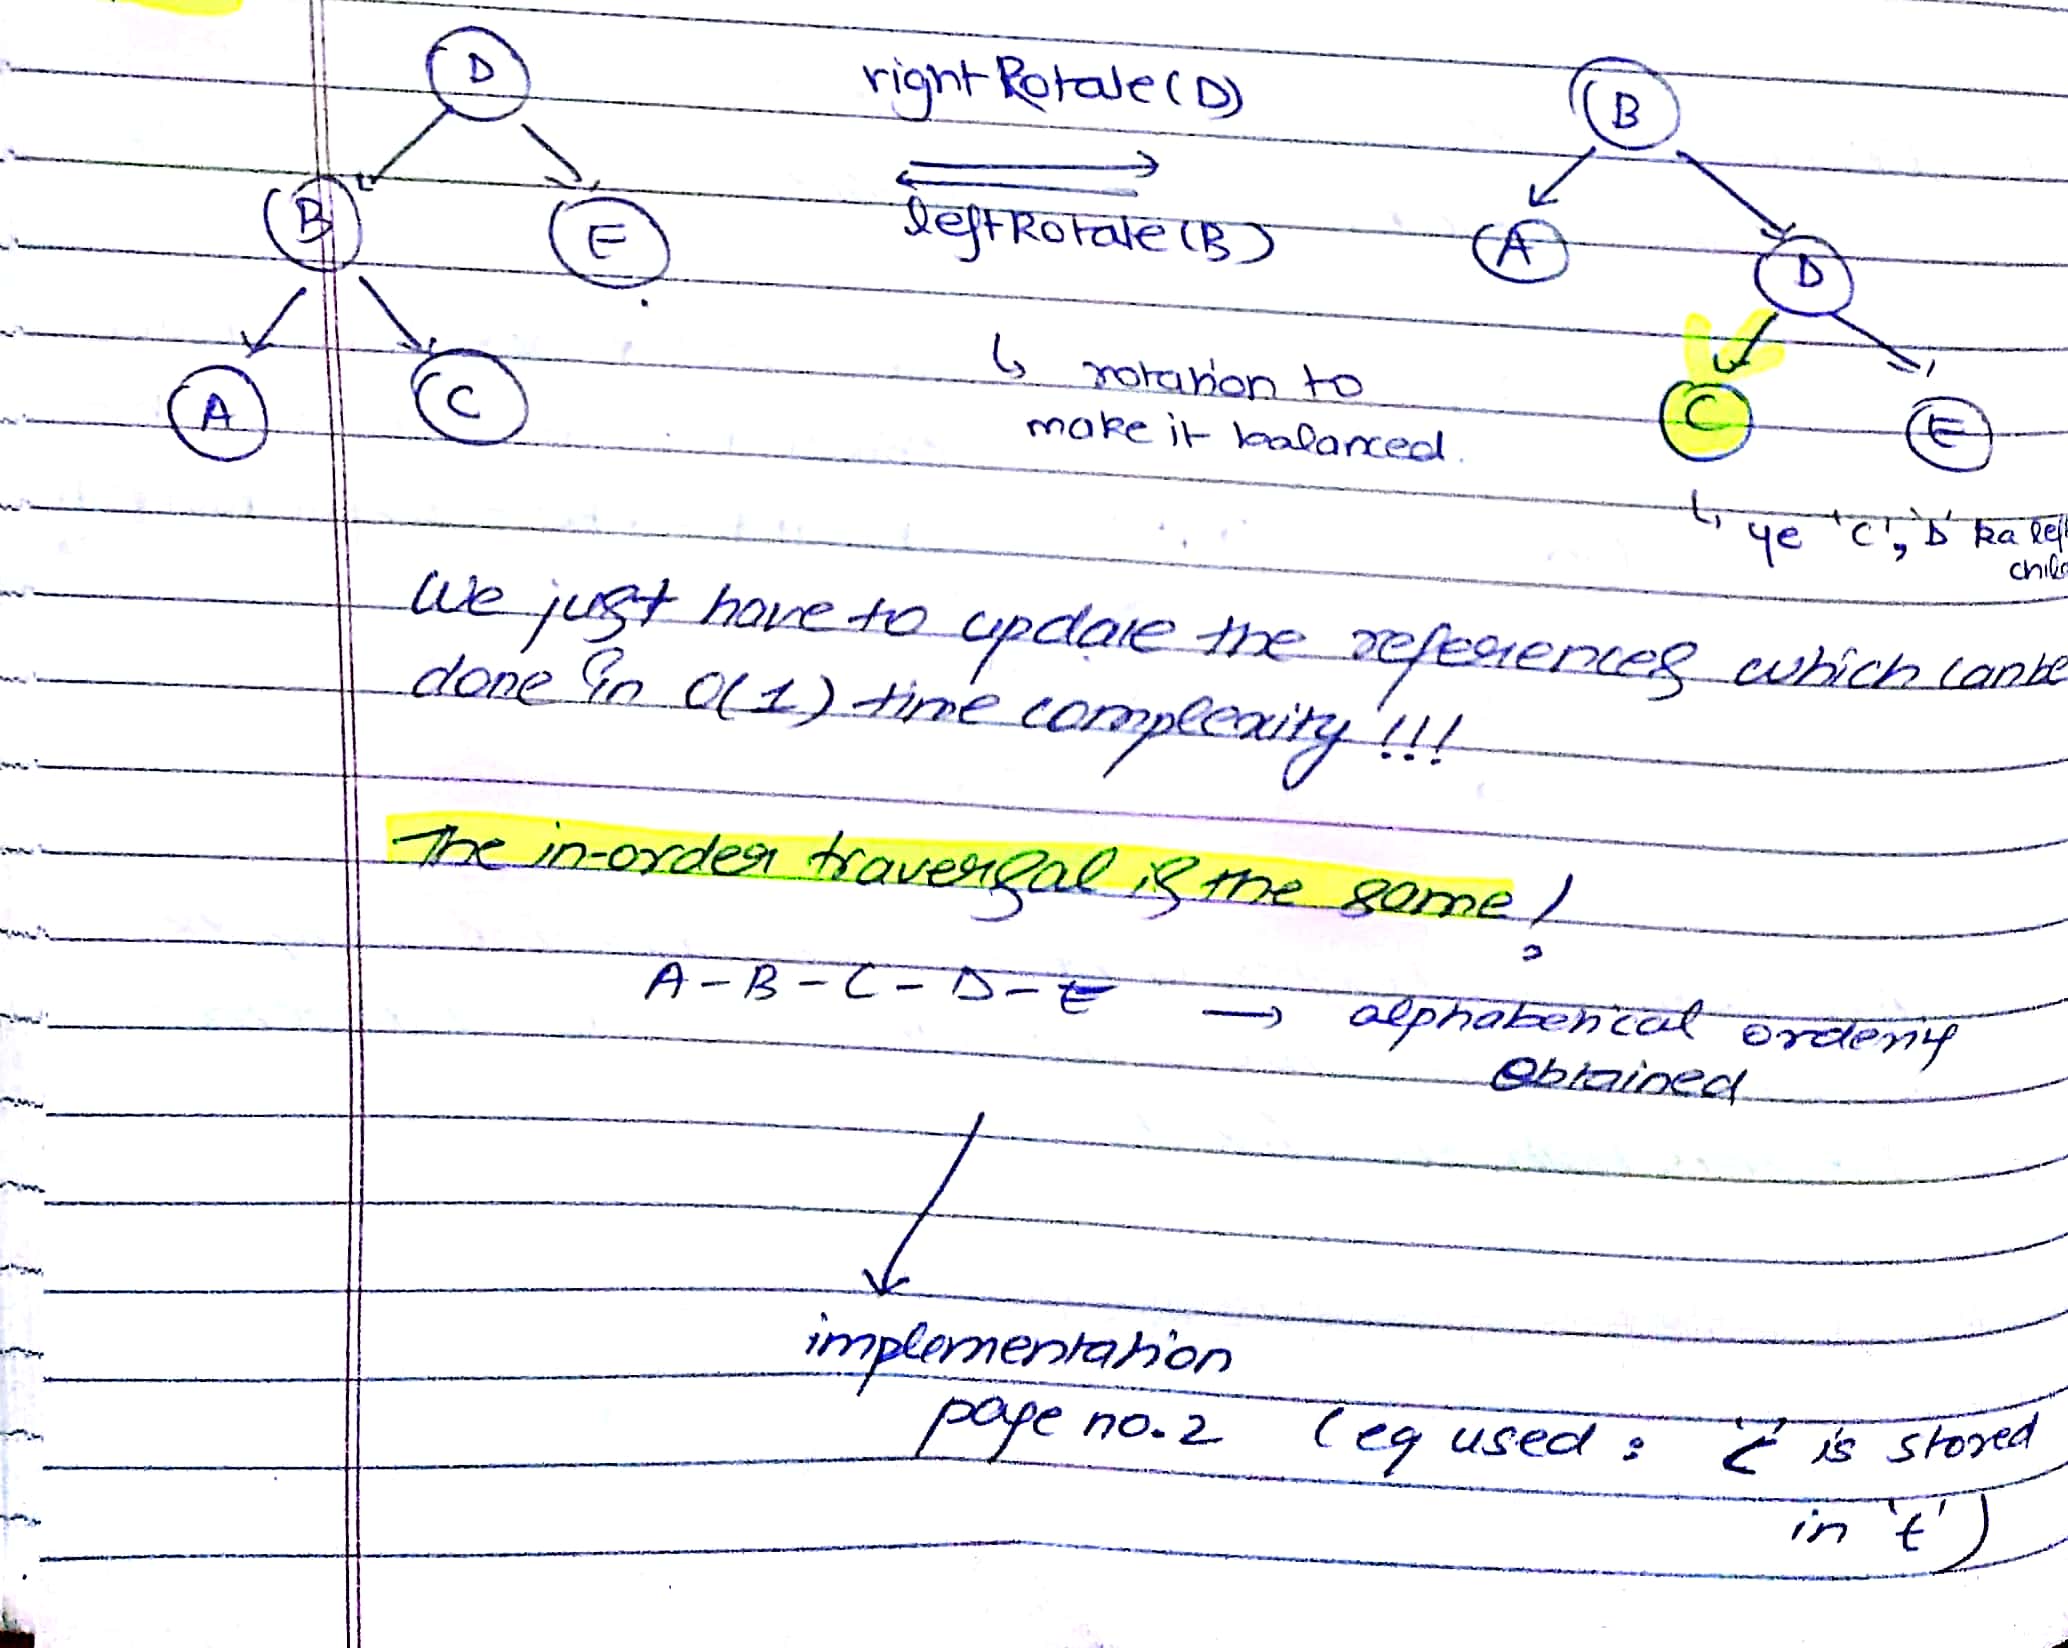 D
rightRotate(D)
B
B
E
leftRotate(B)
A
D
A
C
↳ rotation to
make it balanced.
C
E
↳ ye 'C', 'D' ka left
child
We just have to update the references which can be
done in O(1) time complexity !!!
The in-order traversal is the same!
A-B-C-D-E → alphabetical ordering
obtained
implementation
page no. 2 (eg used : 'C' is stored
in 't')